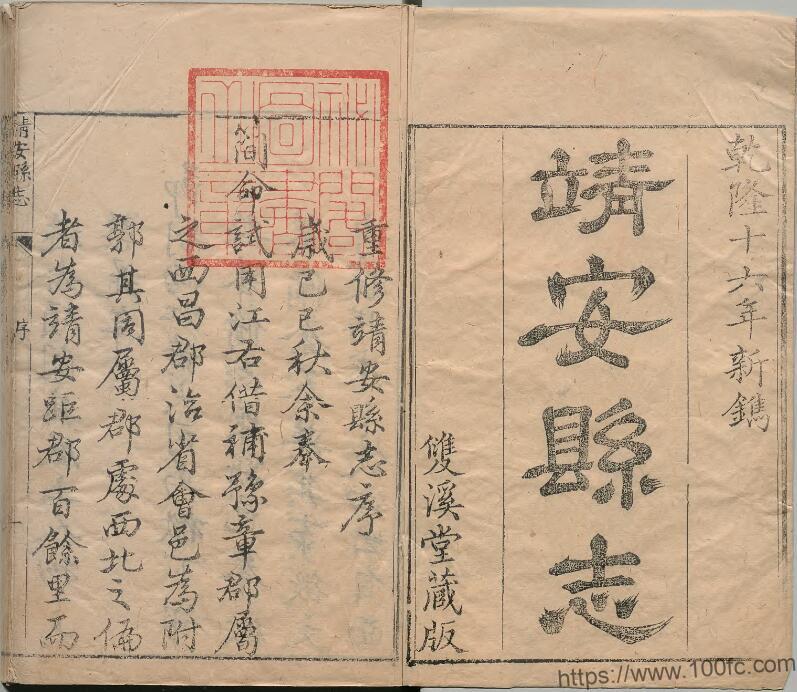 乾隆十六年新鐫
靖安縣志
雙溪堂藏版
重修靖安縣志序
歲己巳秋余奉
簡命試用江右借補豫章郡屬
之西昌郡治省會邑為附
郭其同屬郡處西北之偏
者為靖安距郡百餘里而
靖安縣志
序
https://www.100fc.com